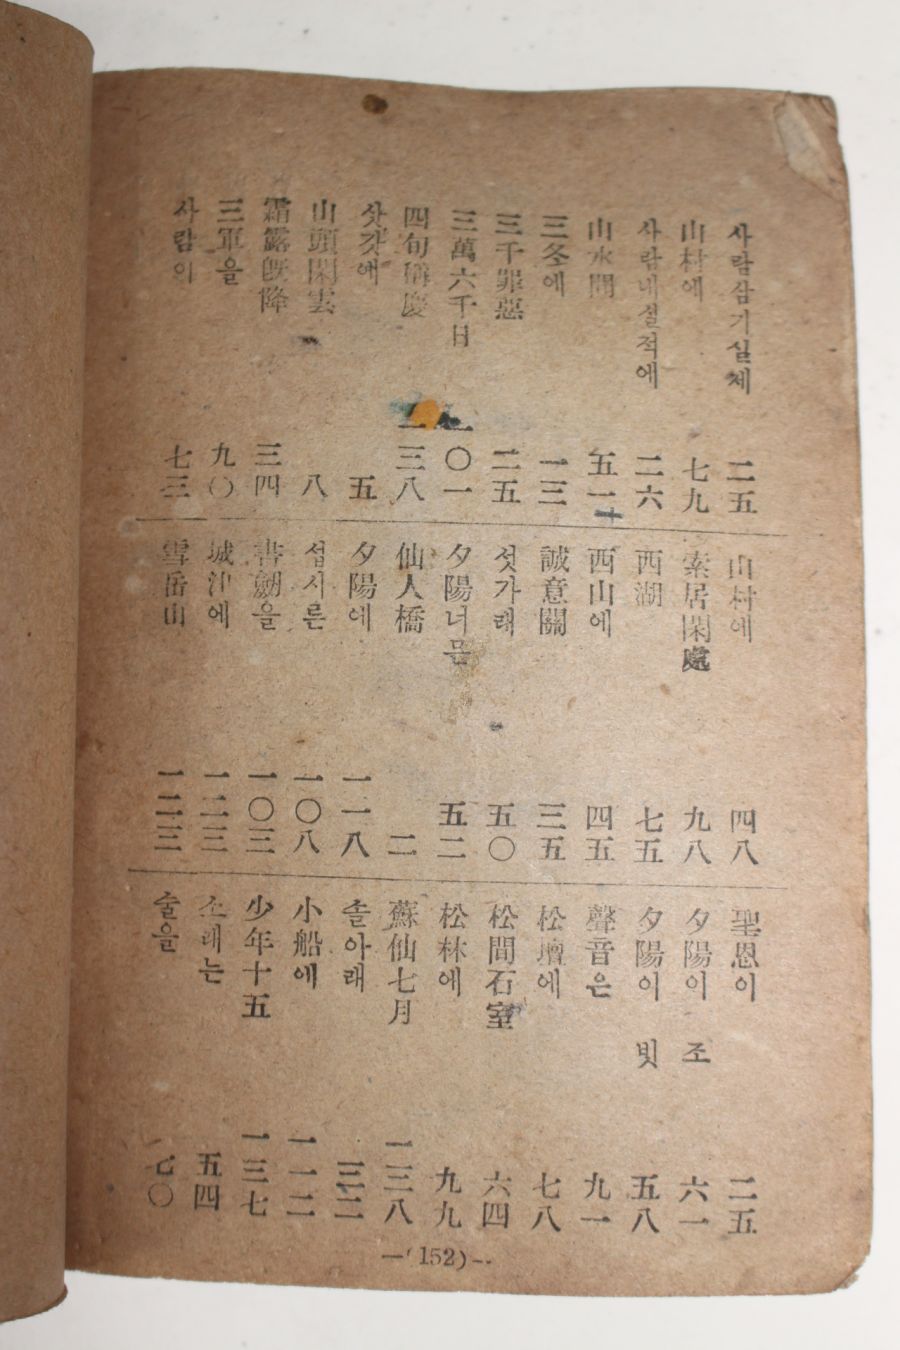 사람삼기실제 二五
山村에 七九
사람네설적에 二六
山水間 五一
三冬에 一三
三千罪惡 二五
三萬六千日 一〇一
四旬稱慶 三八
삿갓애 五
山頭閑雲 八
霜露旣降 三四
三軍을 九〇
사람이 七三
山村에 四八
索居閑處 九八
西湖 七五
西山에 四五
誠意關 三五
섯가래 五〇
夕陽너믄 五二
仙人橋 二
夕陽에 一一八
섭시른 一〇八
書劒을 一〇三
城津에 一二三
雪岳山 一二三
聖恩이 二五
夕陽이 조 六一
夕陽이 빗 五八
聲音은 九一
松壇에 七八
松間石室 六四
松林에 九九
蘇仙七月 一三八
솔아래 三二
小船에 一一二
少年十五 一三七
소래는 五四
술을 七〇
—(152)—